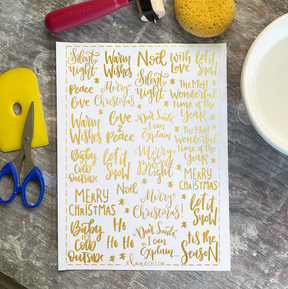 Silent
night
Warm
Wishes
Noël
with
love
let it
Snow
Peace
Merry
Christmas
Silent
night
The Most
Wonderful
Time of the
Year
Warm
Wishes
Love
&
Peace
Dear Santa
I can
Explain
The Most
Wonderful
Time of the
Year
Baby
it's
Cold
Outside
let it
Snow
Merry
&
Bright
MERRY
CHRISTMAS
MERRY
CHRISTMAS
Noël
Merry
Christmas!
let it
Snow
Baby
it's
Cold
Outside
Ho
Ho
Ho
Dear Santa
I can
Explain
'tis the
SeaSoN